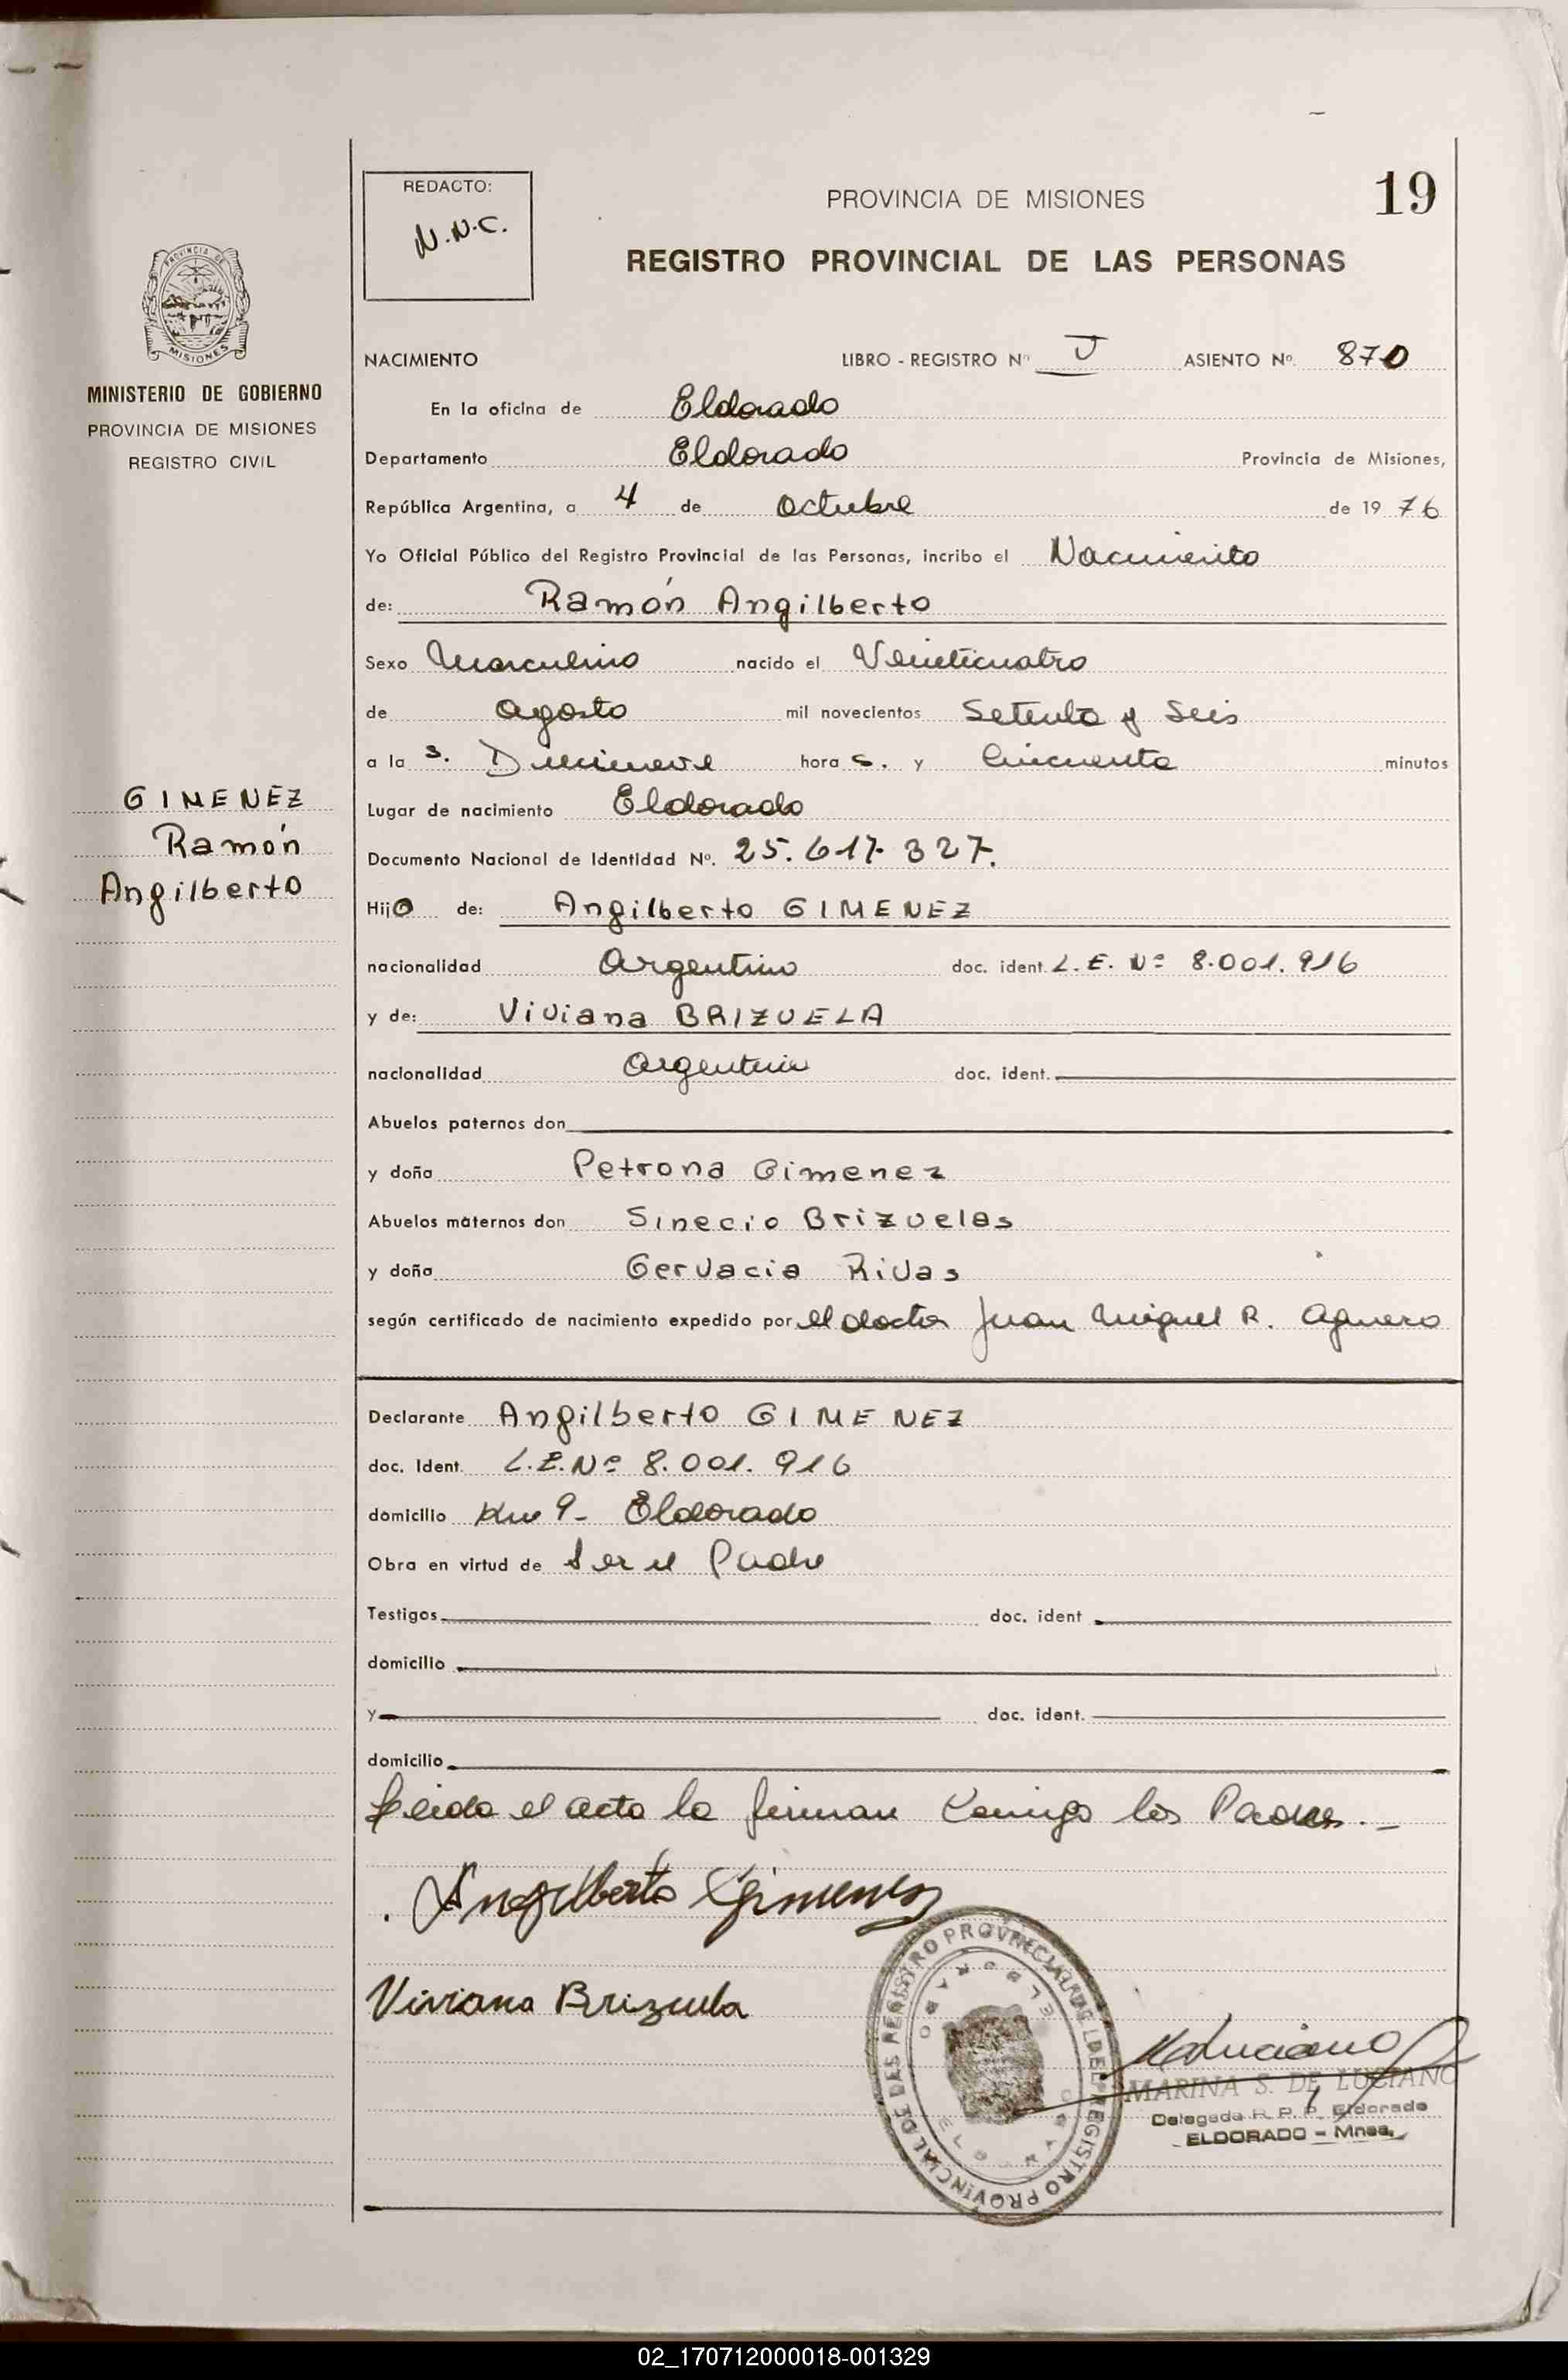 19
REDACTO:
N.N.C.
PROVINCIA DE MISIONES
REGISTRO PROVINCIAL DE LAS PERSONAS
PROVINCIA DE
MISIONES
MINISTERIO DE GOBIERNO
PROVINCIA DE MISIONES
REGISTRO CIVIL
GIMENEZ
Ramón
Angilberto
NACIMIENTO LIBRO - REGISTRO Nº J ASIENTO Nº. 870
En la oficina de Eldorado
Departamento Eldorado Provincia de Misiones,
República Argentina, a 4 de Octubre de 19 76
Yo Oficial Público del Registro Provincial de las Personas, incribo el Nacimiento
de: Ramón Angilberto
Sexo Masculino nacido el Veinticuatro
de agosto mil novecientos Setenta y Seis
a la s. Diecinueve hora s. y Cincuenta minutos
Lugar de nacimiento Eldorado
Documento Nacional de Identidad Nº. 25.617.327.
Hijo de: Angilberto GIMENEZ
nacionalidad Argentino doc. ident. L.E. Nº 8.001.916
y de: Viviana BRIZUELA
nacionalidad Argentina doc. ident.
Abuelos paternos don
y doña Petrona Gimenez
Abuelos maternos don Sinecio Brizuelas
y doña Gervacia Rivas
según certificado de nacimiento expedido por el doctor Juan Miguel R. Aguero
Declarante Angilberto GIMENEZ
doc. Ident. L.E.Nº 8.001.916
domicilio Km 9- Eldorado
Obra en virtud de Ser el Padre
Testigos doc. ident
domicilio
y doc. ident.
domicilio
Leida el acta la firman Conmigo los Padres.-
Angilberto Gimenez
Viviana Brizuela
REGISTRO PROVINCIAL DE LAS
ELDORADO
MARINA S. DE LUCIANO
Delegada R. P. P. Eldorado
ELDORADO - Mnes.
02_170712000018-001329